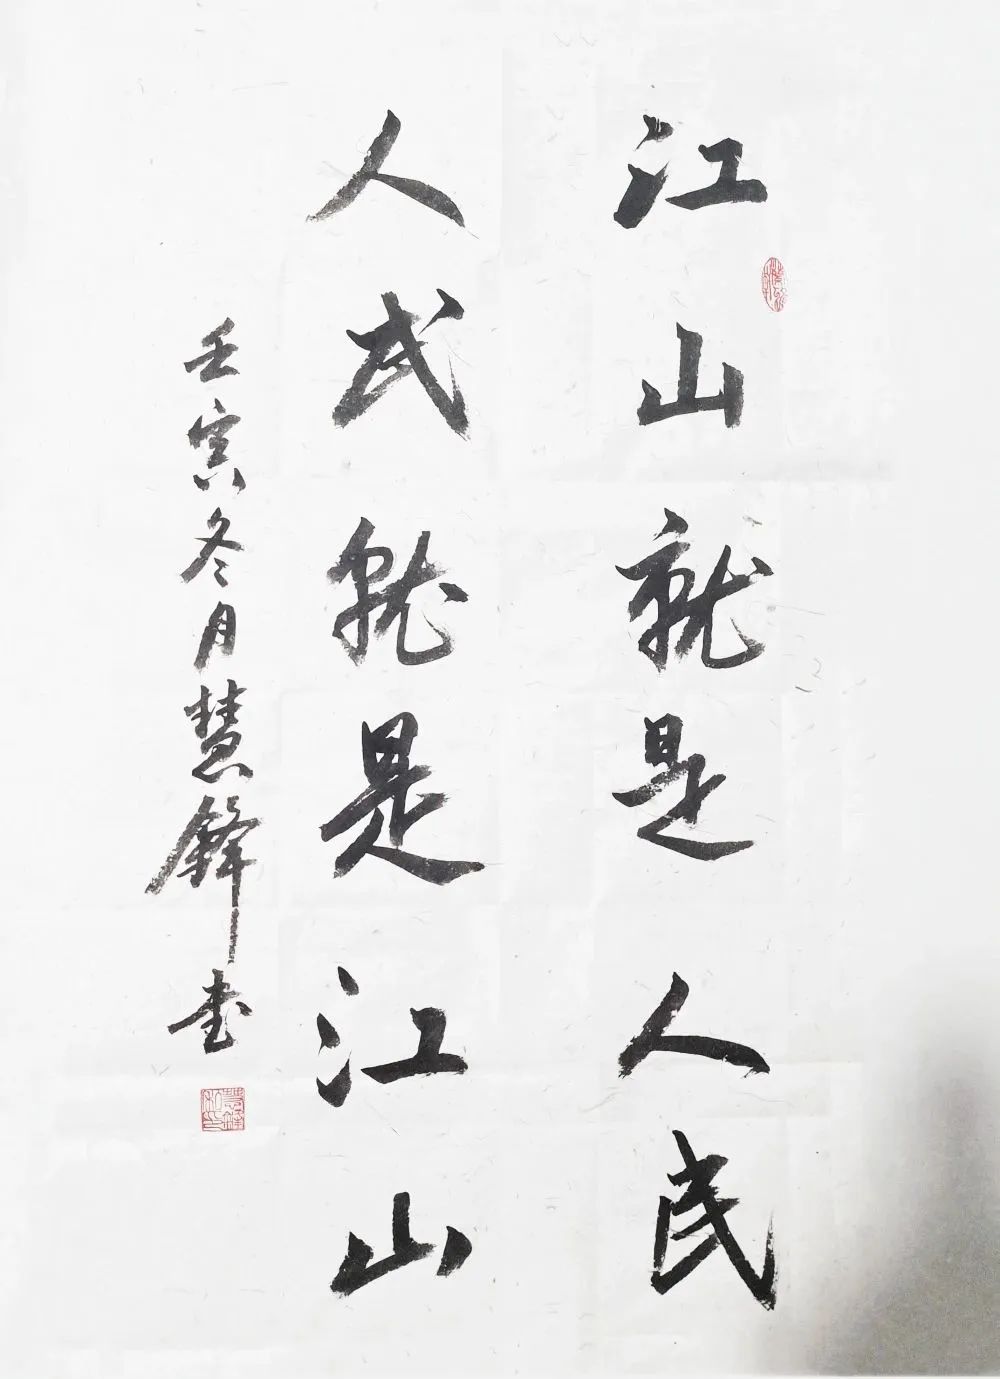 江山就是人民
人民就是江山
壬寅冬月慧锋书